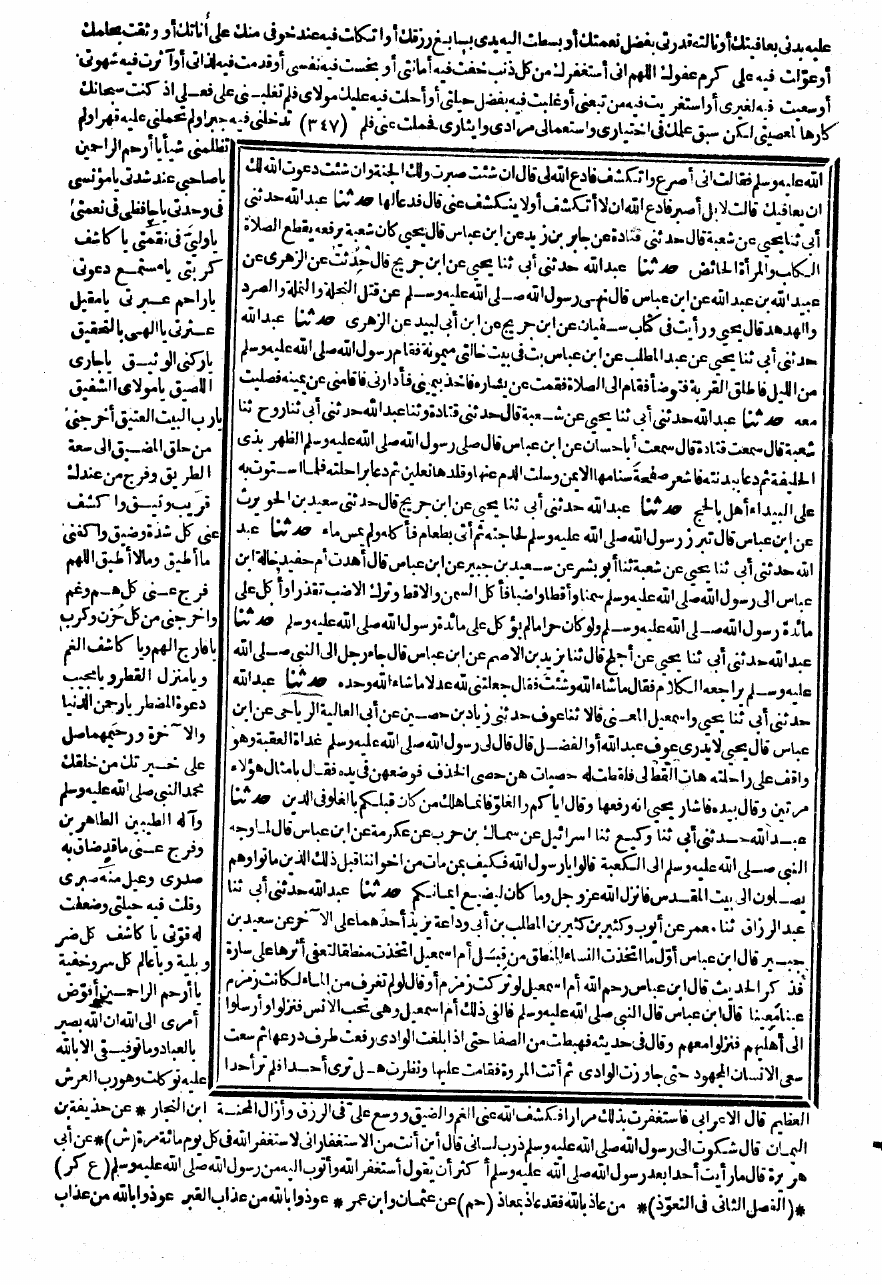 عليه بدنى بعافيتك أو نالته قدرتى بفضل نعمتك أو بسطت اليه يدى بسابغ رزقك أو اتكات فيه عند خوفى منك على أناتك أو وثقت بحلمك
أو عولت فيه على كرم عفوك اللهم انى أستغفرك من كل ذنب خنت فيه أمانتى أو بخست فيه نفسى أو قدمت فيه لذاتى أو آثرت فيه شهوتى
أو سعيت فيه لغيرى أو استغريت فيه من تبعنى أو غلبت فيه بفضل حيلتى أو أحلت فيه عليك مولاى فلم تغلبنى على فعلى اذ كنت سبحانك
كارها لمعصيتى لكن سبق علمك فى اختيارى واستعمالى مرادى وايثارى فحلمت عنى فلم (٣٤٧) تدخلنى فيه جبرا ولم تحملنى عليه قهرا ولم
تظلمنى شيأ يا أرحم الراحمين
يا صاحبى عند شدتى يا مؤنسى
فى وحدتى يا حافظى فى نعمتى
يا وليى فى نقمتى يا كاشف
كربتى يا مستمع دعوتى
يا راحم عبرتى يا مقيل
عثرتى يا الهى بالتحقيق
يا ركنى الوثيق يا جارى
اللصيق يا مولاى الشفيق
يا رب البيت العتيق أخرجنى
من حلق المضيق الى سعة
الطريق وفرج من عندك
قريب وثيق واكشف
عنى كل شدة وضيق واكفنى
ما أطيق وما لا أطيق اللهم
فرج عنى كل هم وغم
واخرجنى من كل حزن وكرب
يا فارج الهم ويا كاشف الغم
ويا منزل القطر ويا مجيب
دعوة المضطر يا رحمن الدنيا
والآخرة ورحيمهما صل
على خيرتك من خلقك
محمد النبى صلى الله عليه وسلم
وآله الطيبين الطاهرين
وفرج عنى ما قد ضاق به
صدرى وعيل منه صبرى
وقلت فيه حيلتى وضعفت
له قوتى يا كاشف كل ضر
وبلية ويا عالم كل سر وخفية
يا أرحم الراحمين أفوض
أمرى الى الله ان الله بصير
بالعباد وما توفيقى الا بالله
عليه توكلت وهو رب العرش
الله عليه وسلم فقالت انى أصرع وأتكشف فادع الله لى قال ان شئت صبرت ولك الجنة وان شئت دعوت الله لك
ان يعافيك قالت لا بل أصبر فادع الله ان لا أتكشف أو لا ينكشف عنى قال فدعا لها حدثنا عبد الله حدثنى
أبى ثنا يحيى عن شعبة قال حدثنى قتادة عن جابر بن زيد عن ابن عباس قال يحيى كان شعبة يرفعه يقطع الصلاة
الكلب والمرأة الحائض حدثنا عبد الله حدثنى أبى ثنا يحيى عن ابن جريج قال حدثت عن الزهرى عن
عبيد الله بن عبد الله عن ابن عباس قال نهى رسول الله صلى الله عليه وسلم عن قتل النحلة والنملة والصرد
والهدهد قال يحيى ورأيت فى كتاب سفيان عن ابن جريج عن ابن أبى لبيد عن الزهرى حدثنا عبد الله
حدثنى أبى ثنا يحيى عن عبد المطلب عن ابن عباس بت فى بيت خالتى ميمونة فقام رسول الله صلى الله عليه وسلم
من الليل فاطلق القربة فتوضأ فقام الى الصلاة فقمت عن يساره فاخذ بيمينى فأدارنى فاقامنى عن يمينه فصليت
معه حدثنا عبد الله حدثنى أبى ثنا يحيى عن شعبة قال حدثنى قتادة وثنا عبد الله حدثنى أبى ثنا روح ثنا
شعبة قال سمعت قتادة قال سمعت أبا حسان عن ابن عباس قال صلى رسول الله صلى الله عليه وسلم الظهر بذى
الحليفة ثم دعا ببدنته فاشعر صفحة سنامها الايمن وسلت الدم عنها وقلدها نعلين ثم دعا براحلته فلما استوت به
على البيداء أهل بالحج حدثنا عبد الله حدثنى أبى ثنا يحيى عن ابن جريج قال حدثنى سعيد بن الحويرث
عن ابن عباس قال تبرز رسول الله صلى الله عليه وسلم لحاجته ثم أتى بطعام فأكله ولم يمس ماء حدثنا عبد
الله حدثنى أبى ثنا يحيى عن شعبة ثنا أبو بشر عن سعيد بن جبير عن ابن عباس قال أهدت أم حفيد خالة ابن
عباس الى رسول الله صلى الله عليه وسلم سمنا وأقطا واضبا فأكل السمن والاقط وترك الاضب تقذرا وأكل على
مائدة رسول الله صلى الله عليه وسلم ولو كان حراما لم يؤكل على مائدة رسول الله صلى الله عليه وسلم حدثنا
عبد الله حدثنى أبى ثنا يحيى عن أجلح قال ثنا يزيد بن الاصم عن ابن عباس قال جاء رجل الى النبى صلى الله
عليه وسلم يراجعه الكلام فقال ما شاء الله وشئت فقال جعلتنى لله عدلا ما شاء الله وحده حدثنا عبد الله
حدثنى أبى ثنا يحيى واسمعيل المعنى قالا ثنا عوف حدثنى زياد بن حصين عن أبى العالية الرياحى عن ابن
عباس قال يحيى لا يدرى عوف عبد الله أو الفضل قال قال لى رسول الله صلى الله عليه وسلم غداة العقبة وهو
واقف على راحلته هات القط لى فلقطت له حصيات هن حصى الخذف فوضعهن فى يده فقال بامثال هؤلاء
مرتين وقال بيده فاشار يحيى انه رفعها وقال اياكم والغلو فانما هلك من كان قبلكم بالغلو فى الدين حدثنا
عبد الله حدثنى أبى ثنا وكيع ثنا اسرائيل عن سماك بن حرب عن عكرمة عن ابن عباس قال لما وجه
النبى صلى الله عليه وسلم الى الكعبة قالوا يا رسول الله فكيف بمن مات من اخواننا قبل ذلك الذين ماتوا وهم
يصلون الى بيت المقدس فانزل الله عز وجل وما كان الله ليضيع ايمانكم حدثنا عبد الله حدثنى أبى ثنا
عبد الرزاق ثنا معمر عن أيوب وكثير بن كثير بن المطلب بن أبى وداعة يزيد أحدهما على الآخر عن سعيد بن
جبير قال ابن عباس أول ما اتخذت النساء المنطق من قبل أم اسمعيل اتخذت منطقا لتعفى أثرها على سارة
فذكر الحديث قال ابن عباس رحم الله أم اسمعيل لو تركت زمزم أو قال لو لم تغرف من الماء لكانت زمزم
عينا معينا قال ابن عباس قال النبى صلى الله عليه وسلم فالفى ذلك أم اسمعيل وهى تحب الانس فنزلوا وأرسلوا
الى أهليهم فنزلوا معهم وقال فى حديثه فهبطت من الصفا حتى اذا بلغت الوادى رفعت طرف درعها ثم سعت
سعى الانسان المجهود حتى جاوزت الوادى ثم أتت المروة فقامت عليها ونظرت هل ترى أحدا فلم تر أحدا
العظيم قال الاعرابى فاستغفرت بذلك مرارا فكشف الله عنى الغم والضيق ووسع على فى الرزق وأزال المحنة ابن النجار * عن حذيفة بن
اليمان قال شكوت الى رسول الله صلى الله عليه وسلم ذرب لسانى قال أين أنت من الاستغفار انى لاستغفر الله فى كل يوم مائة مرة (ش) * عن أبى
هريرة قال ما رأيت أحدا بعد رسول الله صلى الله عليه وسلم أكثر أن يقول أستغفر الله وأتوب اليه من رسول الله صلى الله عليه وسلم (ع كر)
*(الفصل الثانى فى التعوذ)* من عاذ بالله فقد عاذ بمعاذ (حم) عن عثمان وابن عمر * عوذوا بالله من عذاب القبر عوذوا بالله من عذاب